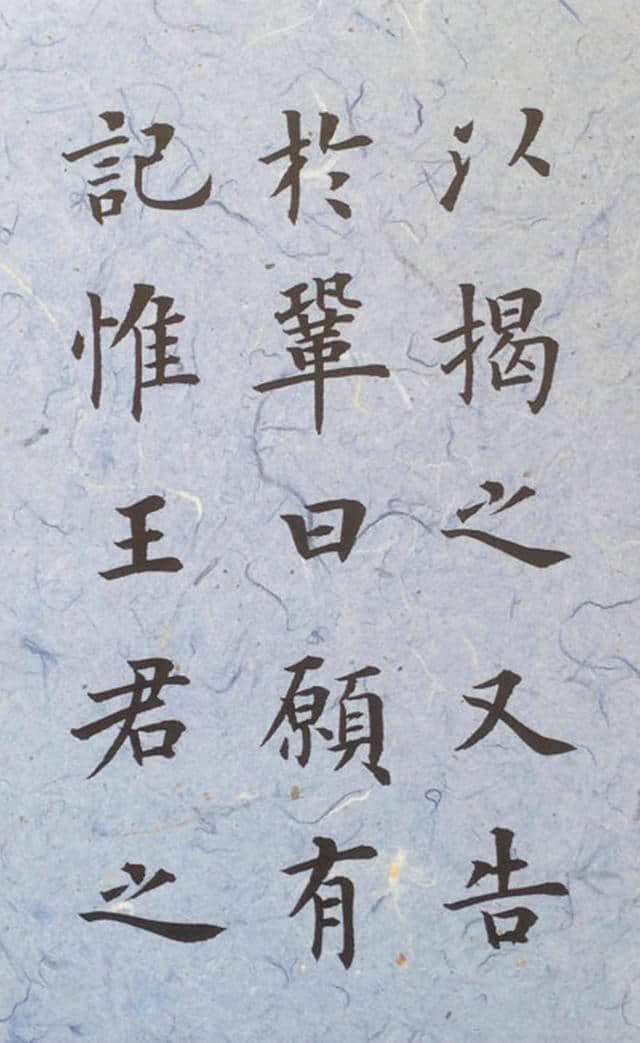 以揭之又告
於鞏曰願有
記惟王君之